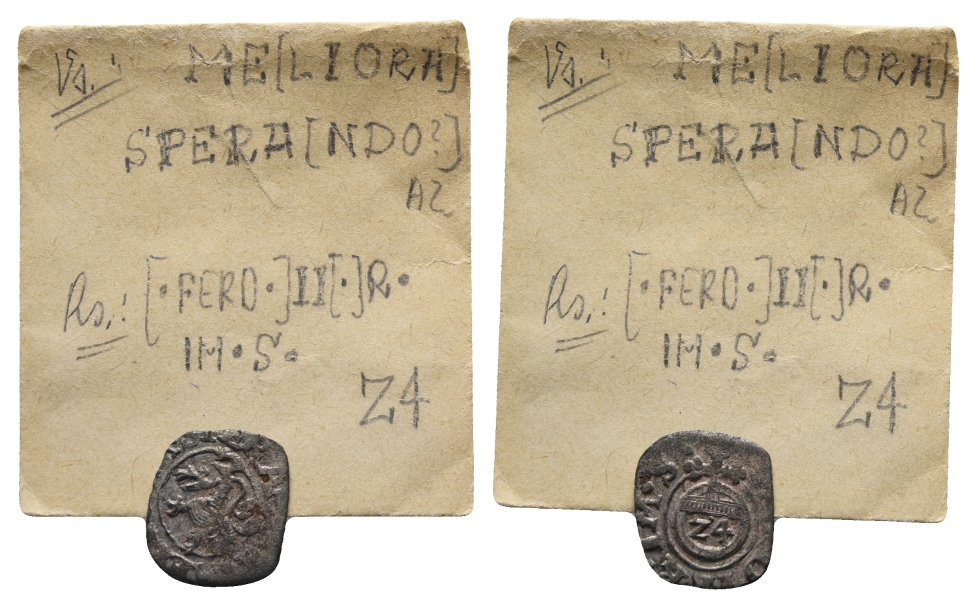 Vs.: ME[LIORA]
SPERA[NDO?]
AZ
Rs.: [·FERD·]II[·]R·
IM·S·
Z4
Vs.: ME[LIORA]
SPERA[NDO?]
AZ
Rs.: [·FERD·]II[·]R·
IM·S·
Z4
IM·S
Z4